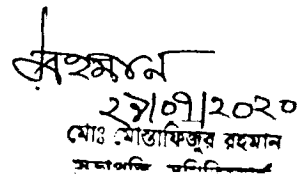 রহমান
২৮/০৭/২০২০
মোঃ মোস্তাফিজুর রহমান